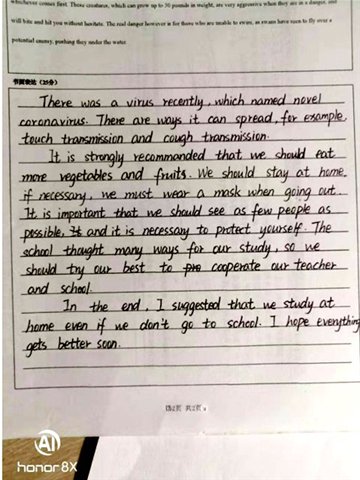 whichever comes first. These creatures, which can grow up to 30 pounds in weight, are very aggressive when they are in a danger, and
will bite and hit you without hesitate. The real danger however is for those who are unable to swim, as swans have seen to fly over a
potential enemy, pushing them under the water.
书面表达 (25分)
There was a virus recently, which named novel
coronavirus. There are ways it can spread, for example,
touch transmission and cough transmission.
It is strongly recommanded that we should eat
more vegetables and fruits. We should stay at home,
if necessary, we must wear a mask when going out.
It is important that we should see as few people as
possible, It and it is necessary to protect yourself. The
school thought many ways for our study, so we
should try our best to pro cooperate our teacher
and school.
In the end, I suggested that we study at
home even if we don't go to school. I hope everything
gets better soon.
第2页 共2页
AI
honor 8X